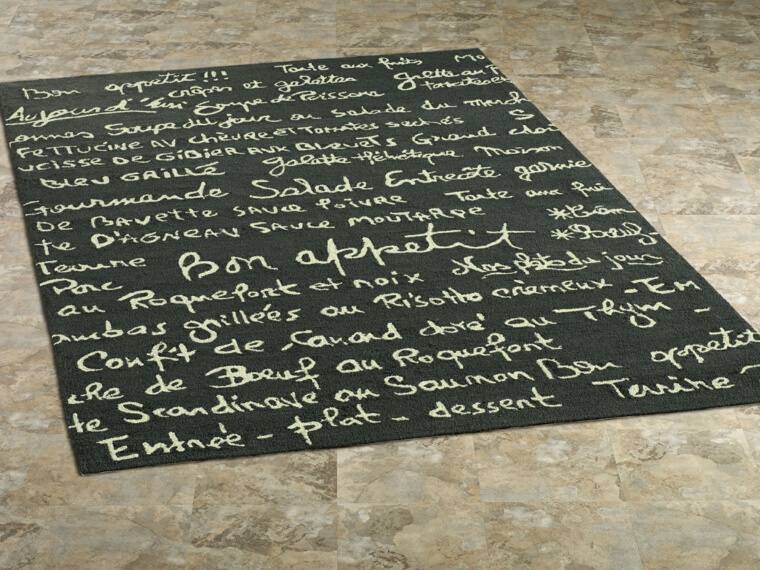 Bon appetit!!! Tarte aux fruits Mo
crêpes et galettes
Aujourd'hui Soupe de Poissons
Soupe du jour ou salade du march
FETTUCINE AU CHÈVRE ET TOMATES SECHÉS S
DE GIBIER AUX BLEUETS Grand choi
BLEU GRILLÉ galette Maison
Gourmande Salade Entrecôte garnie
DE BAVETTE SAUCE POIVRE Tarte aux frui
TE D'AGNEAU SAUCE MOUTARDE
Terrine Bon appetit
Porc Nos plats du jour
au Roquefort et noix
ambas grillées au Risotto crémeux - Em
Confit de Canard doré au Thym -
che de Bœuf au Roquefort
te Scandinave au Saumon Bon appetit
Entrée - plat - dessert Terrine -